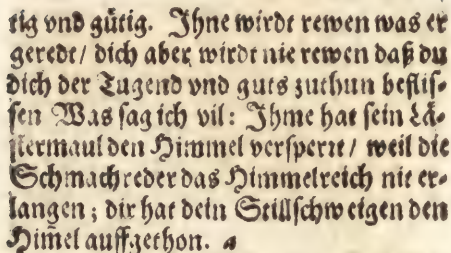 tig vnd gütig. Ihne wirdt rewen was er
geredt / dich aber wirdt nie rewen daß du
dich der Tugend vnd guts zuthun beflis-
sen Was sag ich vil: Ihme hat sein Lä-
stermaul den Himmel versperrt / weil die
Schmachreder das Himmelreich nit er-
langen; dir hat dein Stillschweigen den
Him̃el auffgethon.